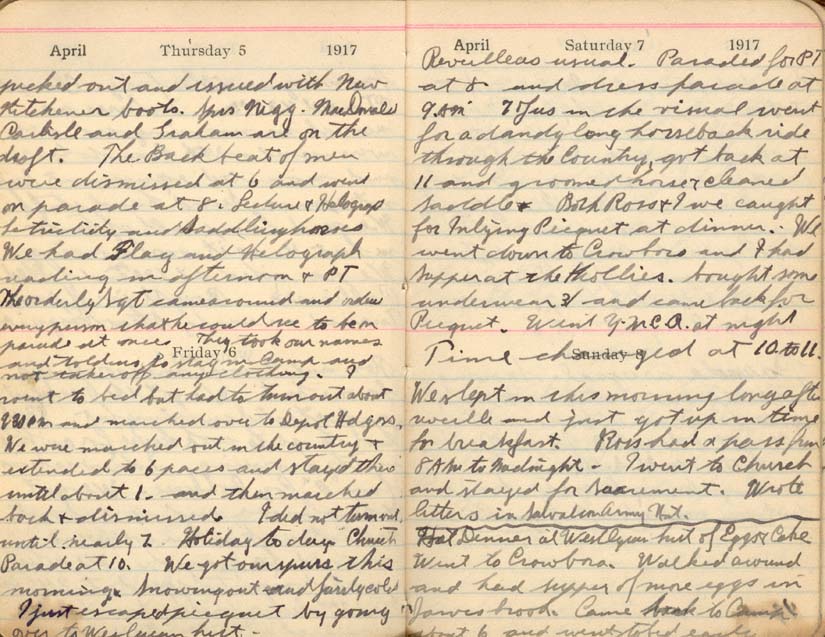 April Thursday 5 1917
picked out and issued with New
Kitchener boots. Sprs Nigg. MacDonald
Carlisle and Graham are on the
draft. The Back beat of men
were dismissed at 6 and went
on parade at 8. Lecture & Helograp
Letricity and Saddling horses
We had Flag and Helograph
reading in afternoon & PT
The orderly Sgt came around and orders
every person that he could see to be on
parade at once. They took our names
and told us to stay in Camp and
Friday 6
not take off any clothing. I
went to bed but had to turn out about
9 30 PM and marched over to Depot Hdqrs.
We were marched out in the country &
extended to 6 paces and stayed there
until about 1. and then marched
back & dismissed. I did not turn out
until nearly 7. Holiday to day Church
Parade at 10. We got our spurs this
morning. Snowing out and fairly cold
I just escaped picquet by going
over to Wesleyan hut.
April Saturday 7 1917
Reveille as usual. Paraded for PT
at 8 and dress parade at
9 AM 7 of us in the visual went
for a dandy long horseback ride
through the Country, got back at
11 and groomed horses & cleaned
saddles Both Ross & I we caught
for Inlying Picquet at dinner. We
went down to Crowboro and I had
supper at the Hollies. bought some
underwear and came back for
Picquet. Went Y.M.C.A. at night
Time changed at 10 to 11.
Sunday 8
We slept in this morning long after
reveille and just got up in time
for breakfast. Ross had a pass from
8 AM to Midnight - I went to Church
and stayed for Sacrement. Wrote
letters in Salvation Army Hut.
Had Dinner at Weslyan hut of Eggs & Cake
Went to Crowboro. Walked around
and had supper of more eggs in
Jarvis brook. Came back to Camp
about 6 and went to bed early